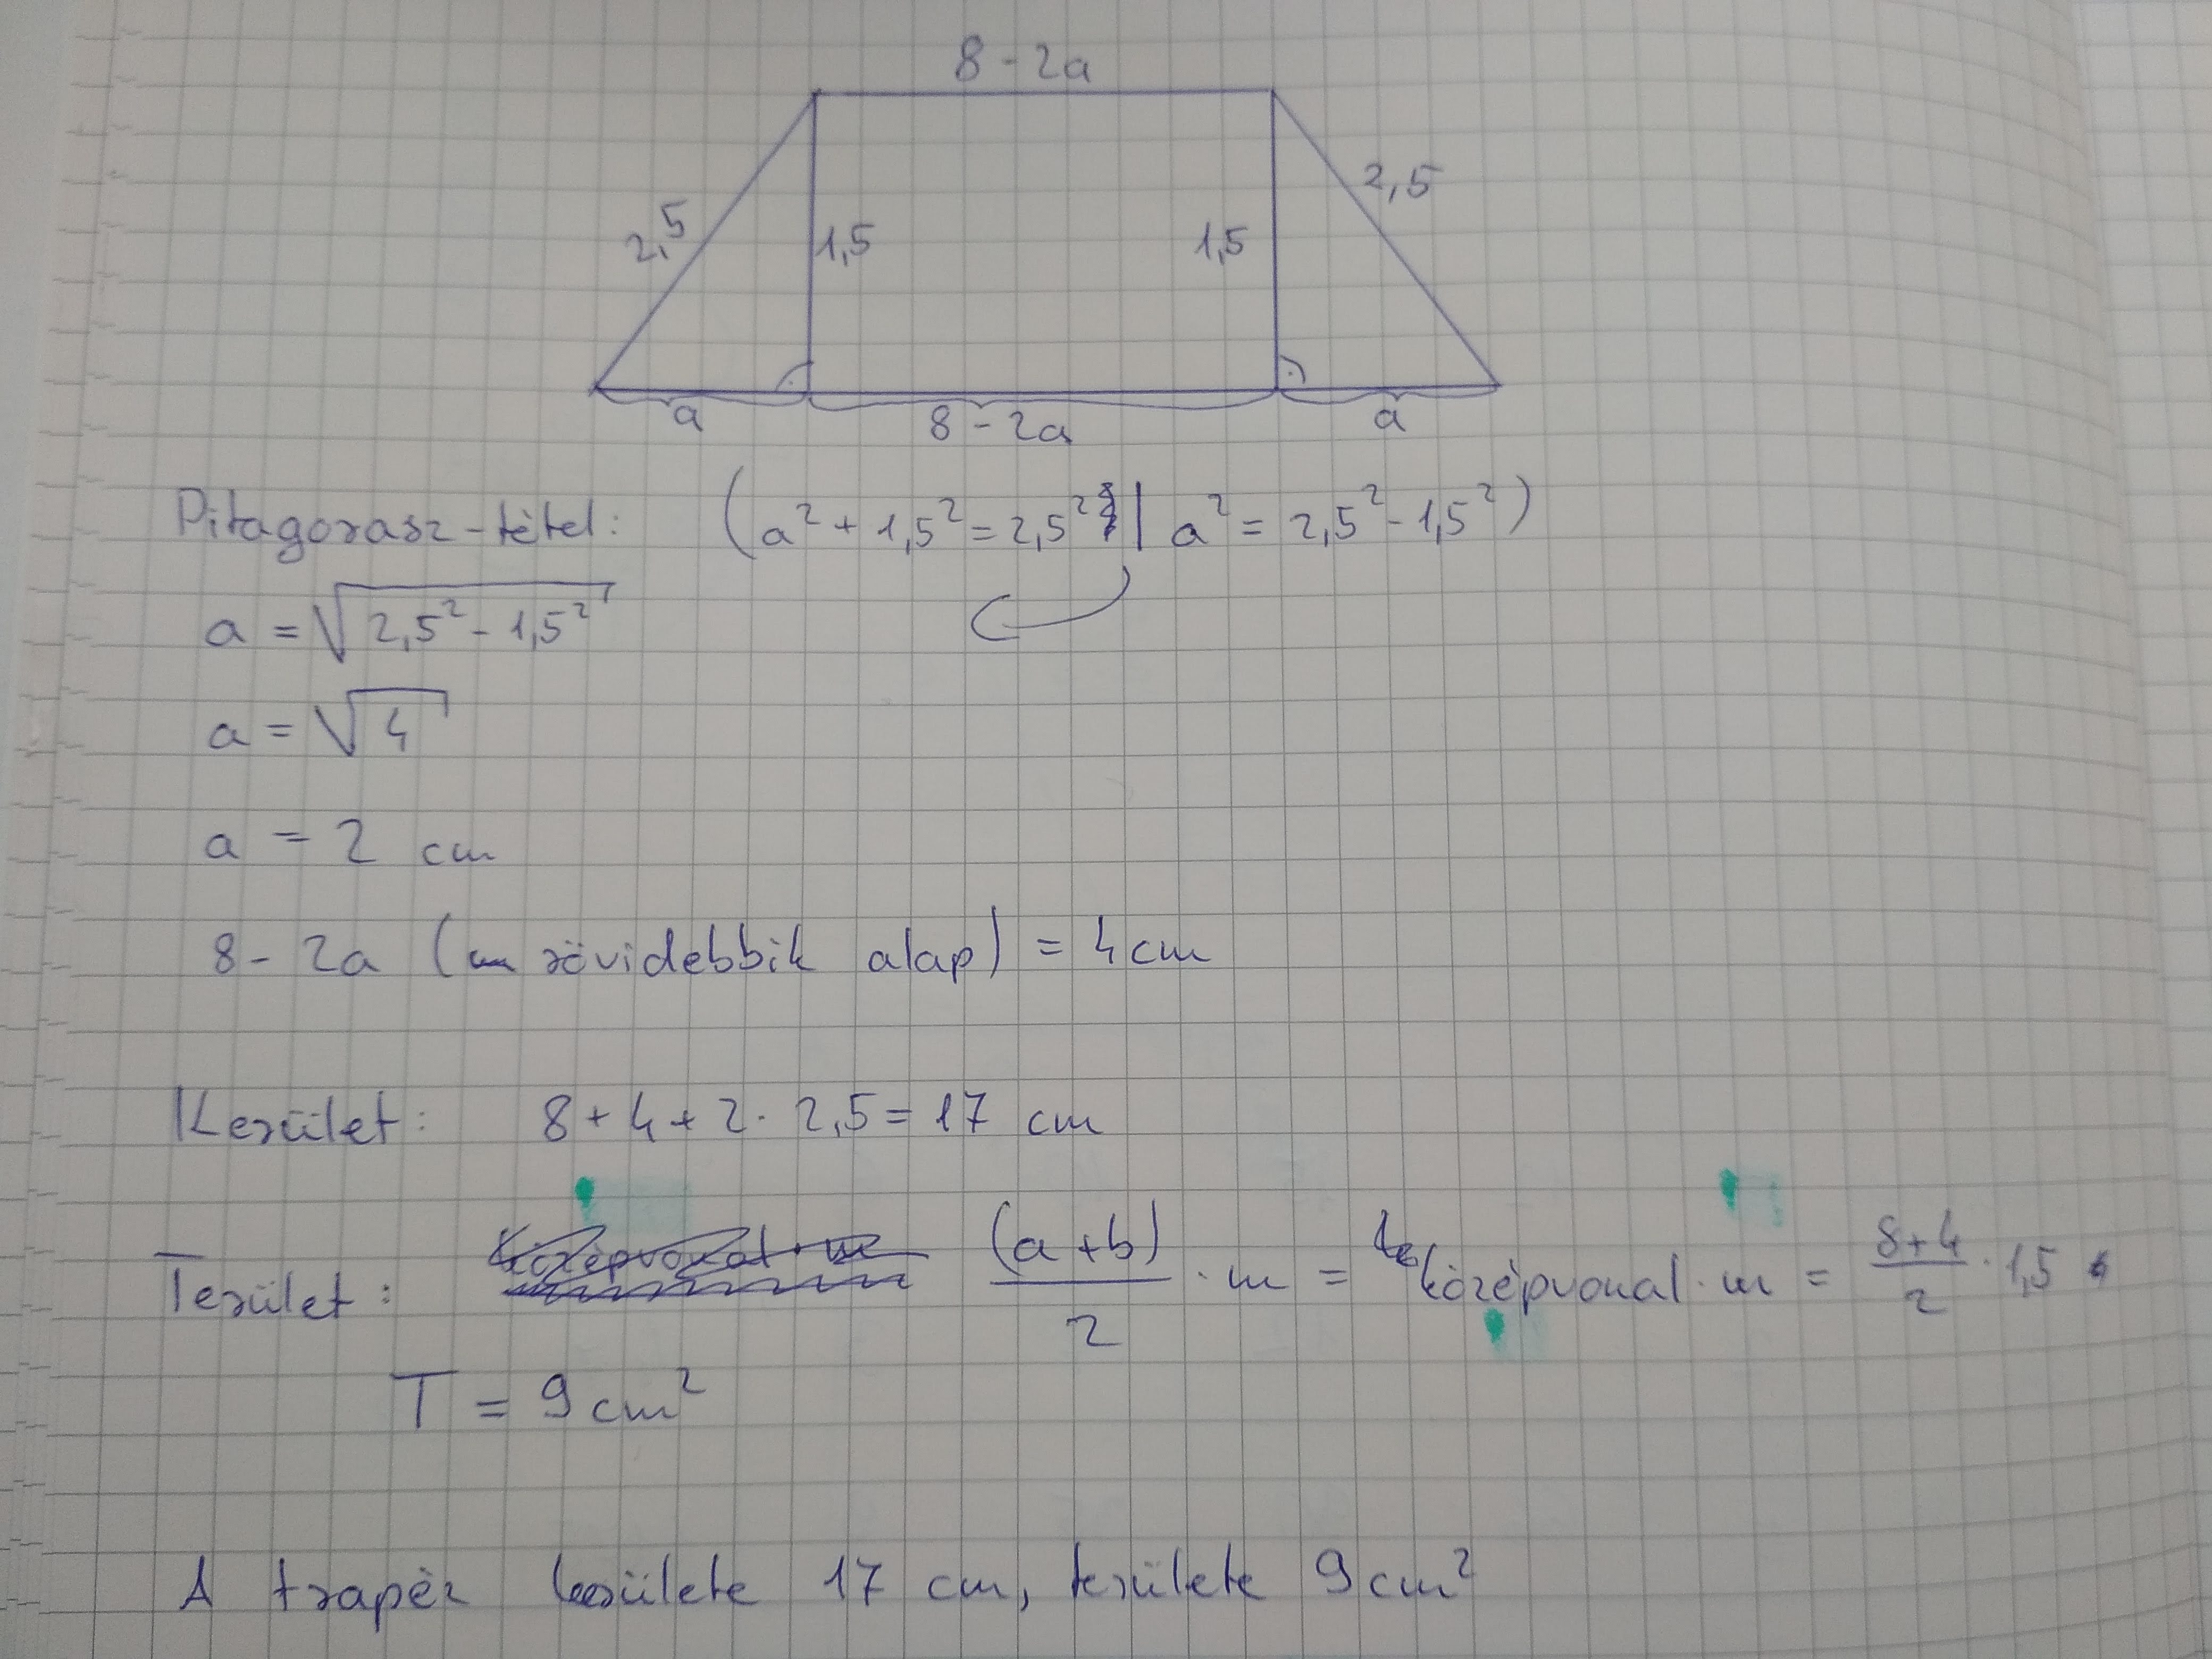 8 - 2a
2,5
2,5
1,5
1,5
a
8 - 2a
a
Pitagorasz-tétel: (a² + 1,5² = 2,5² | a² = 2,5² - 1,5²)
a = √2,5² - 1,5²
a = √4
a = 2 cm
8 - 2a (rövidebbik alap) = 4 cm
Kerület: 8 + 4 + 2 · 2,5 = 17 cm
Terület: (a + b)/2 · m = középvonal · m = 8+4/2 · 1,5
T = 9 cm²
A trapéz kerülete 17 cm, területe 9 cm²